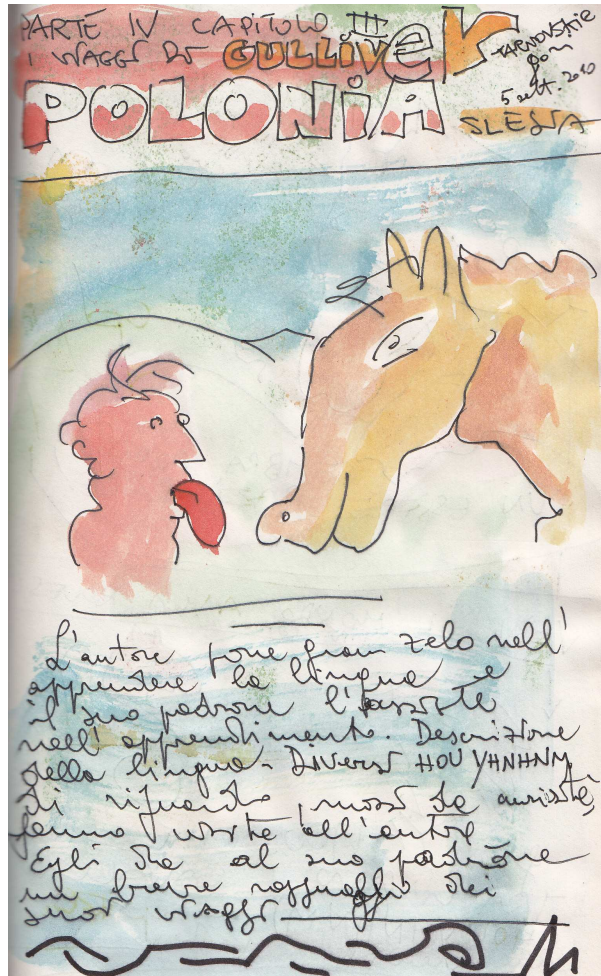 PARTE IV CAPITOLO III
I VIAGGI DI GULLIVER
TARNOVSKIE
GORY
5 sett. 2010
POLONIA
SLESIA
L'autore pone gran zelo nell'
apprendere la lingua e
il suo padrone l'assiste
nell'apprendimento. Descrizione
della lingua - DIVERSI HOUYHNHNM
di riguardo, mossi da curiosità,
fanno visita all'autore
Egli dà al suo padrone
un breve ragguaglio dei
suoi viaggi